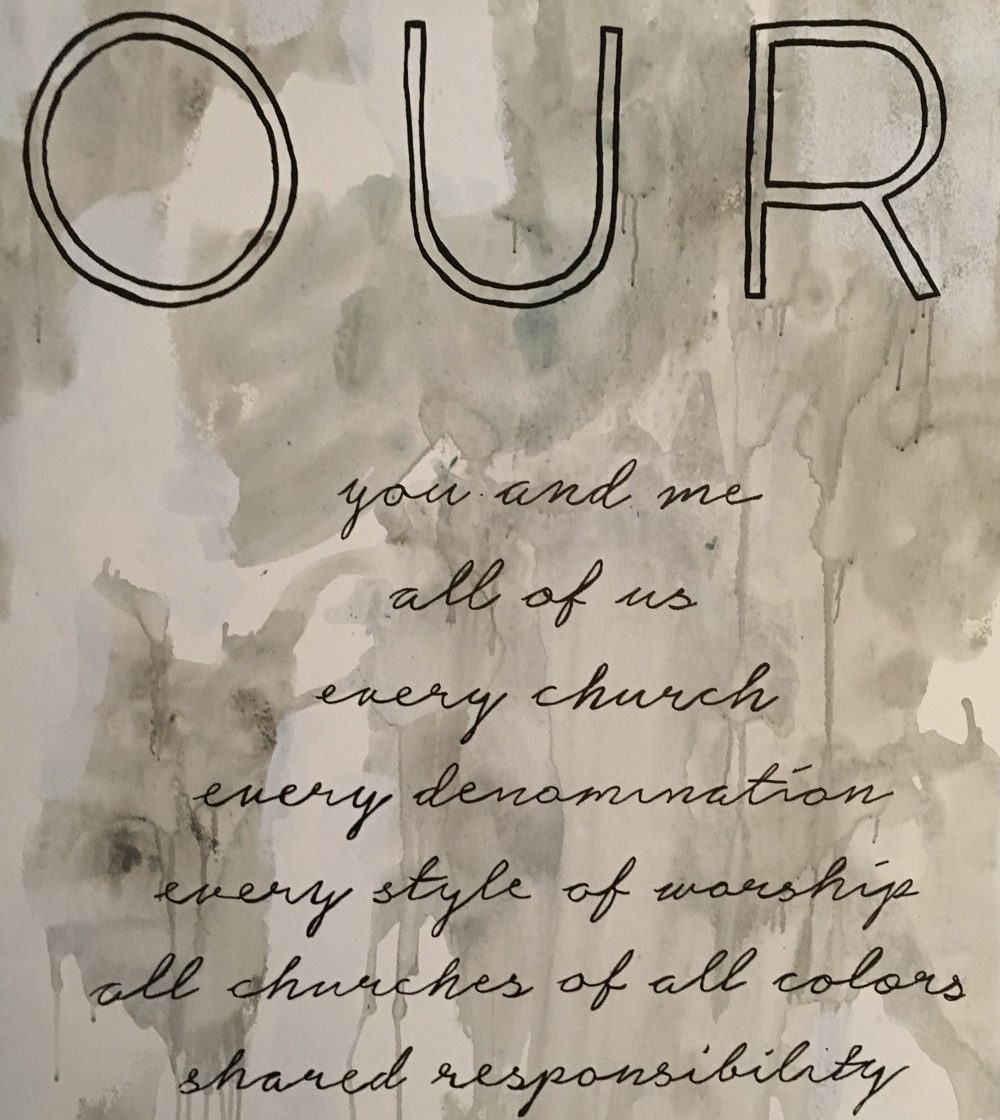 OUR
you and me
all of us
every church
every denomination
every style of worship
all churches of all colors
shared responsibility